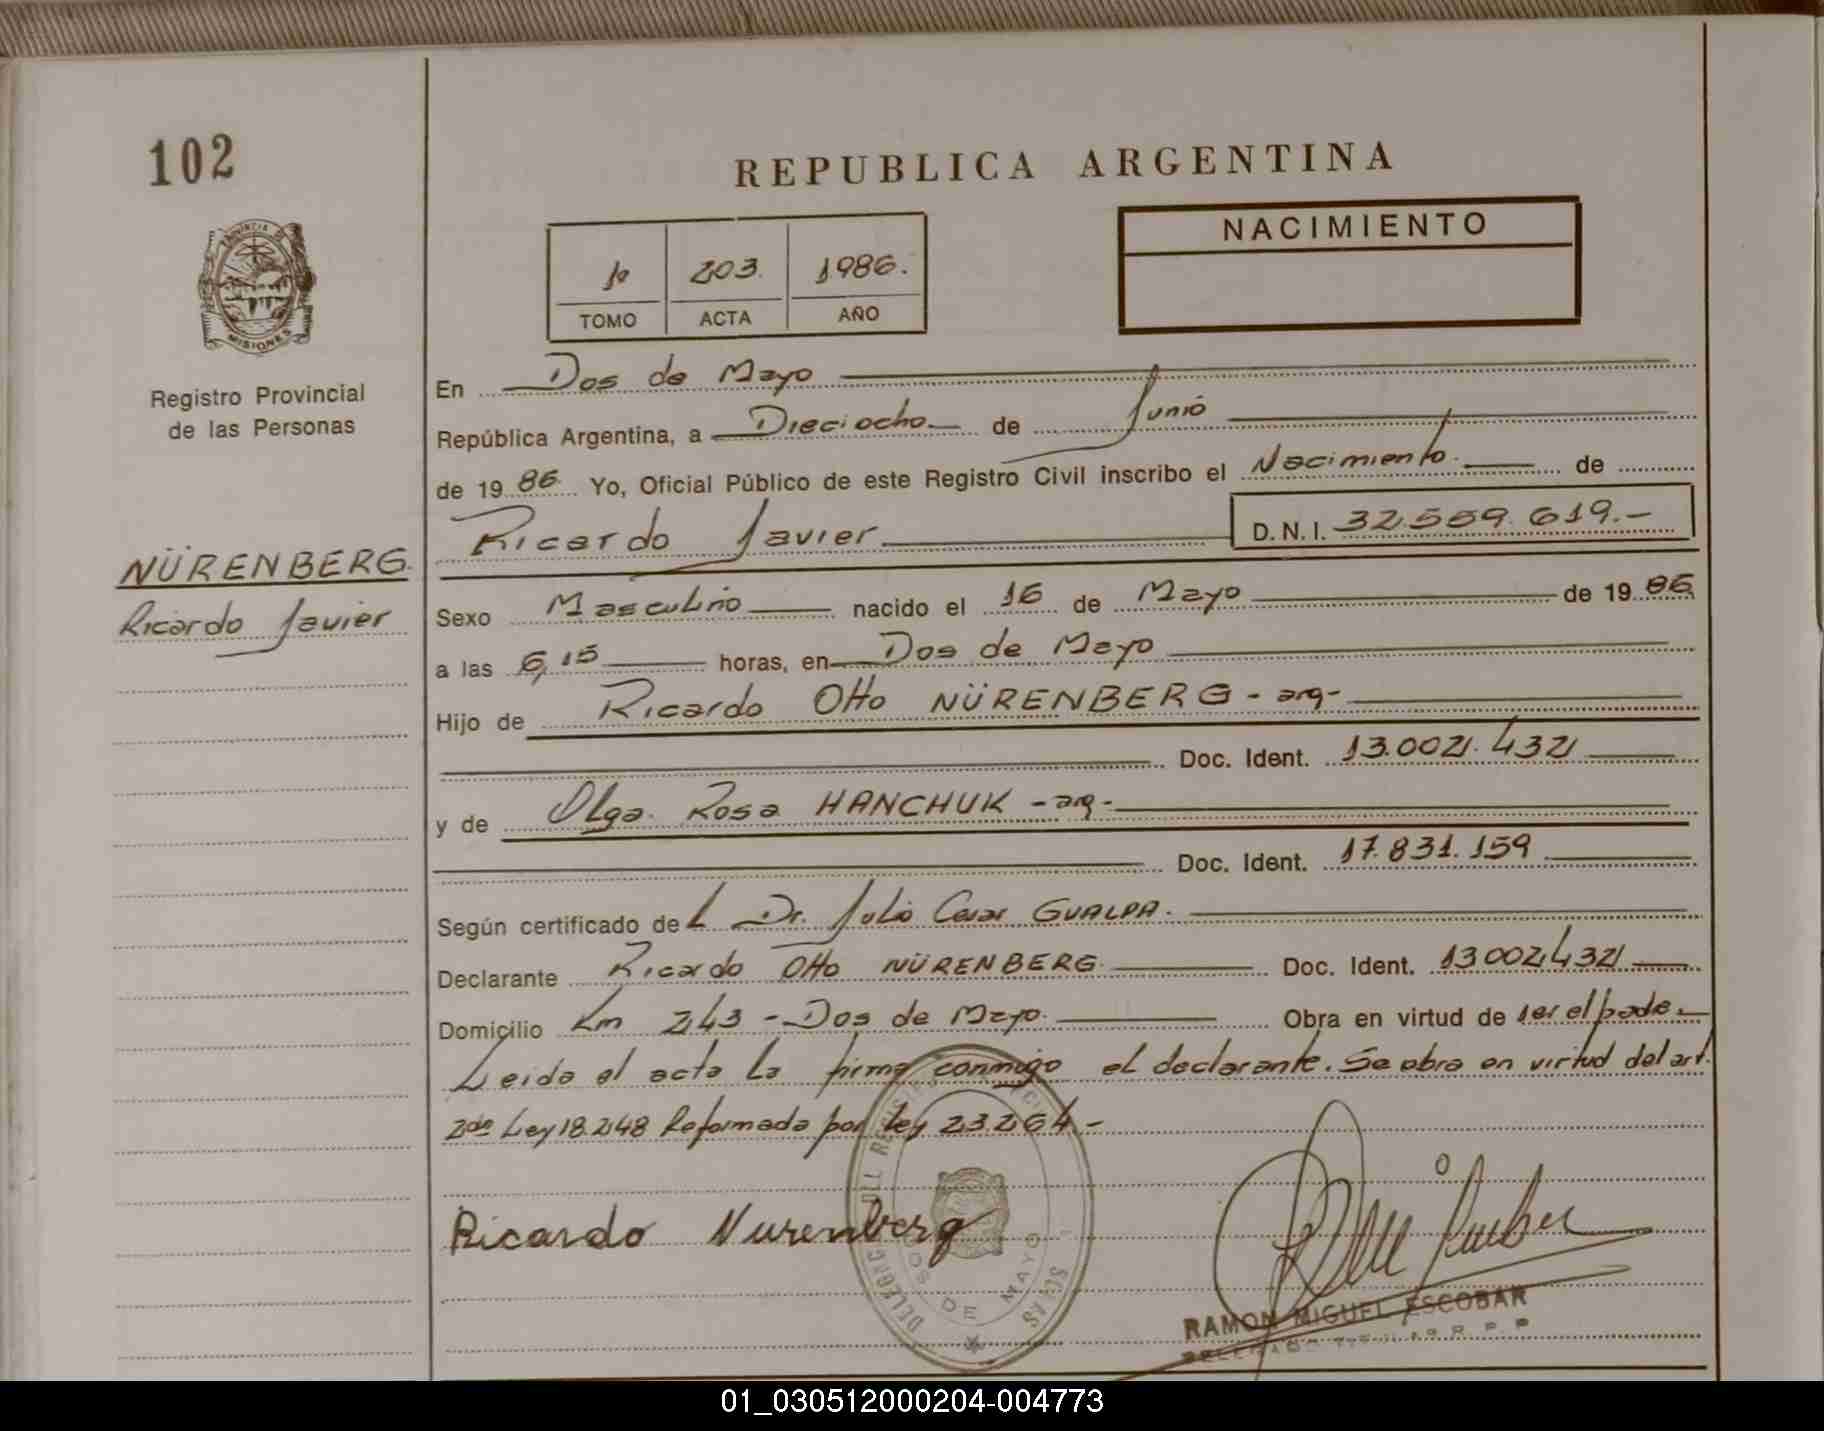 102
REPUBLICA ARGENTINA
NACIMIENTO
1º 203. 1986.
TOMO ACTA AÑO
PROVINCIA DE
MISIONES
Registro Provincial
de las Personas
NÜRENBERG.
Ricardo Javier
En Dos de Mayo
República Argentina, a Dieciocho de Junio
de 1986. Yo, Oficial Público de este Registro Civil inscribo el Nacimiento. de
Ricardo Javier D.N.I. 32.559.619.-
Sexo Masculino nacido el 16 de Mayo de 1986
a las 6,15 horas, en Dos de Mayo
Hijo de Ricardo Otto NÜRENBERG - arg-
Doc. Ident. 13.002.432
y de Olga Rosa HANCHUK - arg-
Doc. Ident. 17.831.159
Según certificado del Dr. Julio Cesar GUALPA.
Declarante Ricardo Otto NÜRENBERG. Doc. Ident. 13.002.432
Domicilio Km 243 - Dos de Mayo. Obra en virtud de ser el padre.-
Leida el acta la firma conmigo el declarante. Se obra en virtud del art.
2do Ley 18.248 Reformada por ley 23.264.-
Ricardo Nurenberg
DOS DE MAYO
RAMON MIGUEL ESCOBAR
01_030512000204-004773